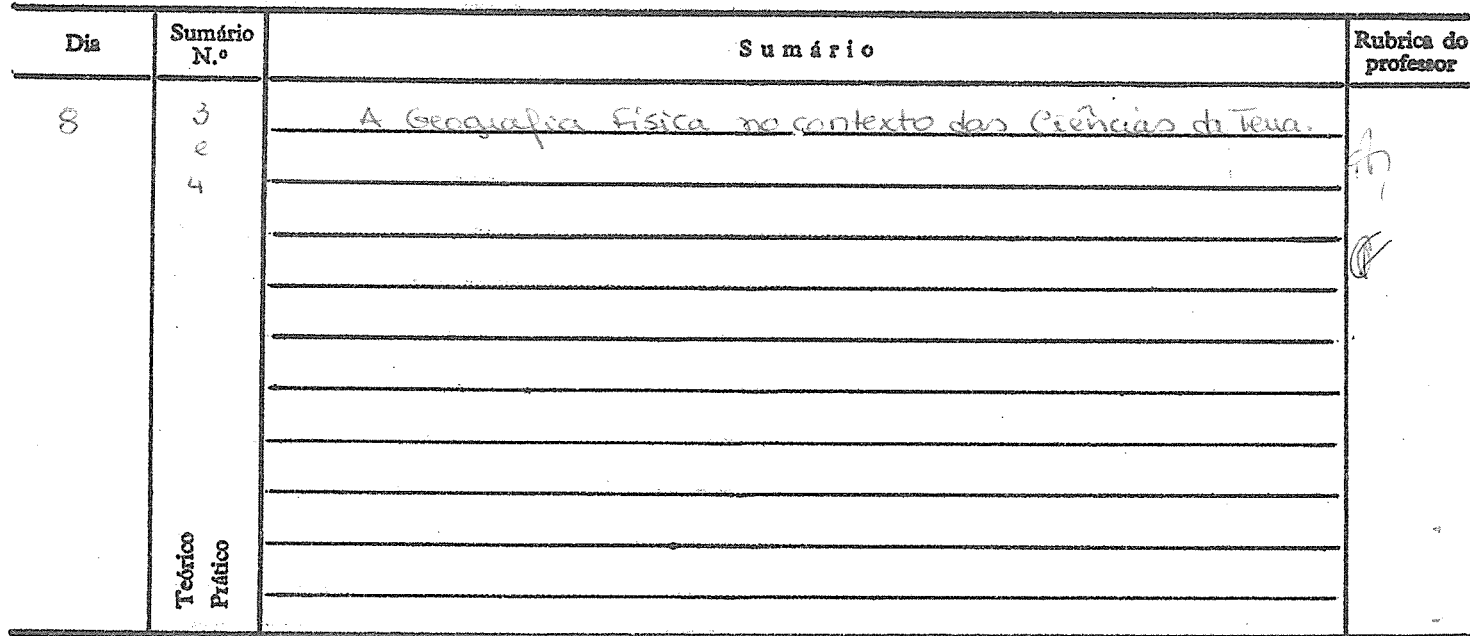 Dia Sumário N.º Sumário Rubrica do professor
8 3 A Geografia Física no contexto das Ciências da Terra.
e
4
Teórico
Prático